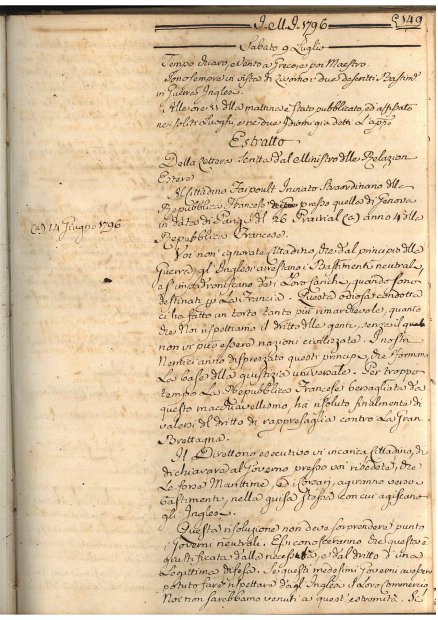 I. M. I. 1796
149
Sabato 9 Luglio
Tempo chiaro, e vento a Greco e poi Maestro
Sono sempre in vista di Livorno i due descritti Bastim.
di Guerra Inglesi
Alle ore 11 della mattina è stato pubblicato, ed affisso
nei soliti Luoghi, e ne due Idiomi già detti l'app.
Estratto
Della Lettera scritta dal Ministro delle Relazioni
Estere
Al Cittadino Faipoult Inviato Straordinario della
Repubblica Francese presso quella di Genova
in data di Parigi del 26 Prairial (a) anno 4 della
(a) 14 Giugno 1796
Repubblica Francese.
Voi non ignorate Cittadino, che dal principio della
Guerra, gl'Inglesi arrestano i Bastimenti neutrali,
e s'impadroniscono de i Loro carichi, quando sono
destinati p. La Francia. Questa odiosa condotta
ci ha fatto un torto tanto più rimarchevole, quanto
che Noi rispettiamo il dritto delle genti, senza il quale
non vi può essere nazioni civilizzate. I nostri
Nemici anno disprezzato questi principj, che formano
La base della giustizia universale. Per troppo
tempo La Repubblica Francese bersagliata da
questo macchiavellismo, ha risoluto finalmente di
valersi del dritto di rappresaglia contro La Gran
Brettagna.
Il Direttorio esecutivo vi incarica Cittadino, di
dichiarare al Governo presso cui risedete, che
Le forze Marittime, ed i Corsari, agiranno verso i
bastimenti, nella guisa stessa con cui agiscono
gl'Inglesi.
Questa risoluzione non deve sorprendere punto
i Governi neutrali. Essi conosceranno che questa è
giustificata dalla necessità, e dal dritto d'una
Legittima difesa. Se questi medesimi Governi avessero
potuto fare rispettare dagl'Inglesi il Loro commercio
Noi non saressimo venuti a quest'estremità.